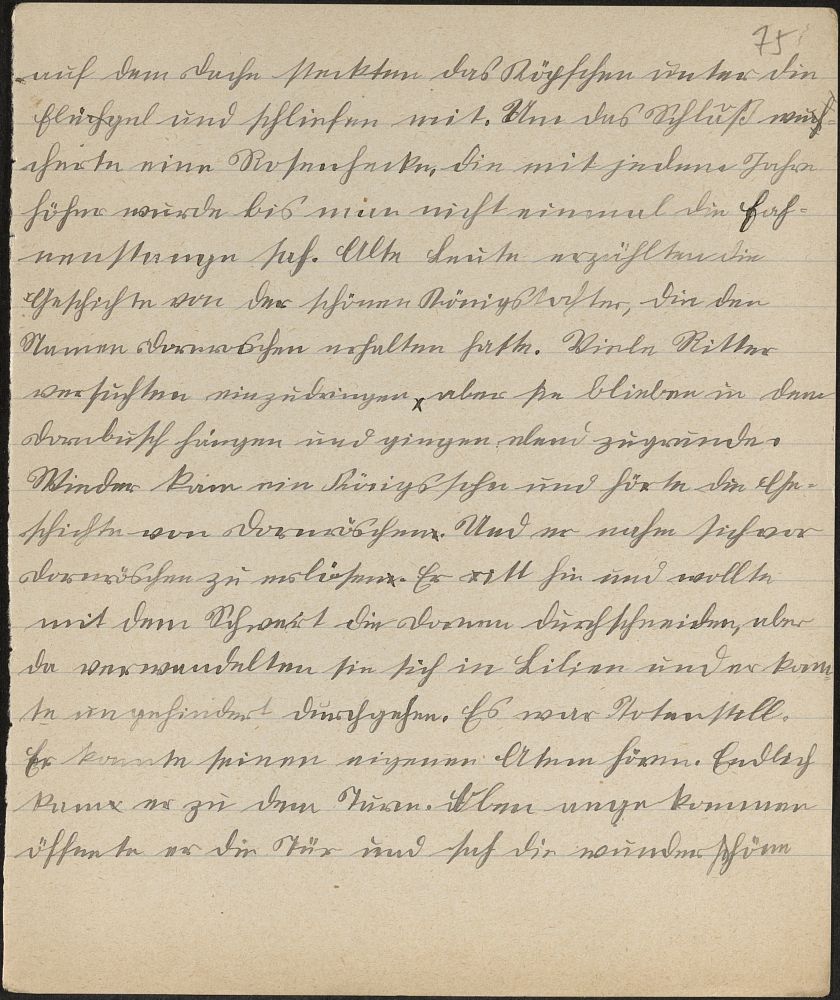 75
auf dem Dache steckten das Köpfchen unter die
Flüchgel und schliefen mit. Um das Schluß wuch-
cherte eine Rosenhecke, die mit jedem Jahre
höher wurde bis man nicht einmal die Fah-
nenstange sah. Alte Leute erzählten die
Geschichte von der schönen Königstochter, die den
Namen Dornroschen erhalten hatte. Viele Ritter
versuchten einzudringen, aber sie blieben in dem
Dornbusch hängen und gingen elend zugrunde.
Wieder kam ein Königssohn und hörte die Ge-
schichte von Dornröschen. Und er nahm sich vor
Dornröschen zu erlösen. Er ritt hin und wollte
mit dem Schwert die Dornen durchschneiden, aber
da verwandelten sie sich in Lilien und er konn-
te ungehindert durchgehen. Es war Totenstill.
Er konnte seinen eigenen Atem hören. Endlich
kam er zu dem Turm. Oben ange kommen
öffnete er die Tür und sah die wunderschöne